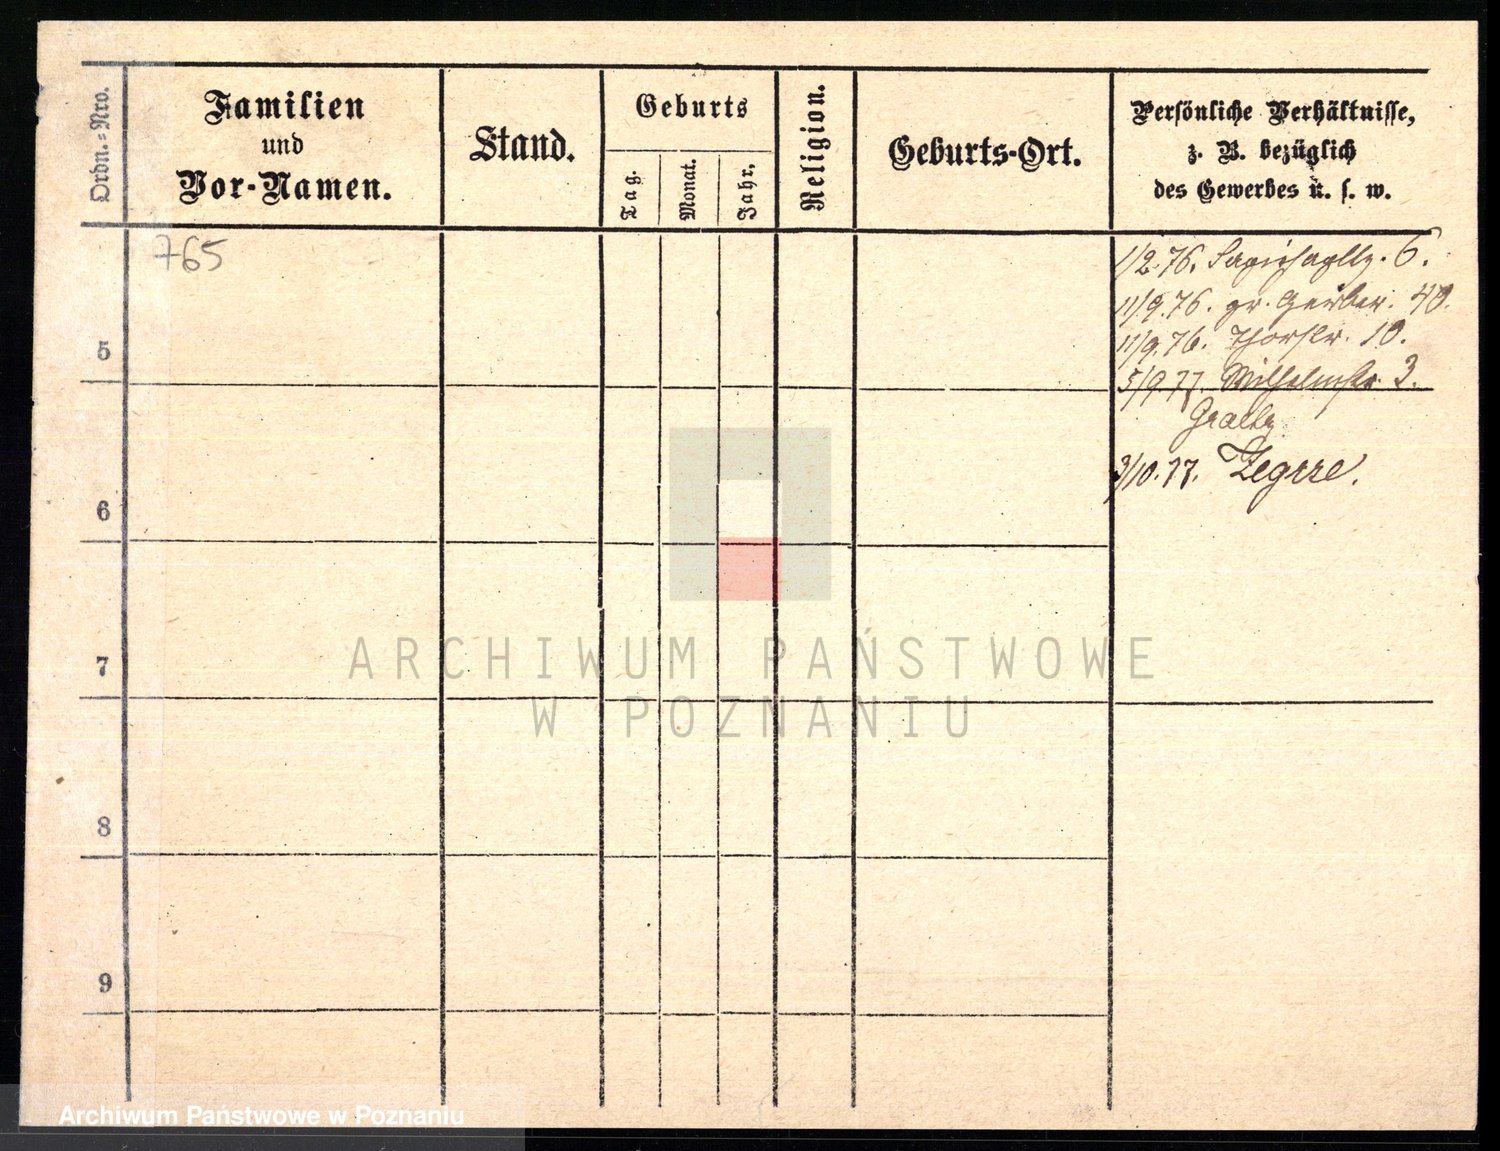 Ordn.-Nro.
Familien
und
Vor-Namen.
Stand.
Geburts
Tag.
Monat.
Jahr.
Religion.
Geburts-Ort.
Persönliche Verhältnisse,
z. B. bezüglich
des Gewerbes u. s. w.
765
1/2.76. Sapiehapltz. 6.
11/9.76. gr. Gerber. 40.
11/9.76. Thorstr. 10.
5/9.77. Wilhelmstr. 3.
3/10.77. Zegrze.
5
6
7
8
9
ARCHIWUM PAŃSTWOWE
W POZNANIU
Archiwum Państwowe w Poznaniu